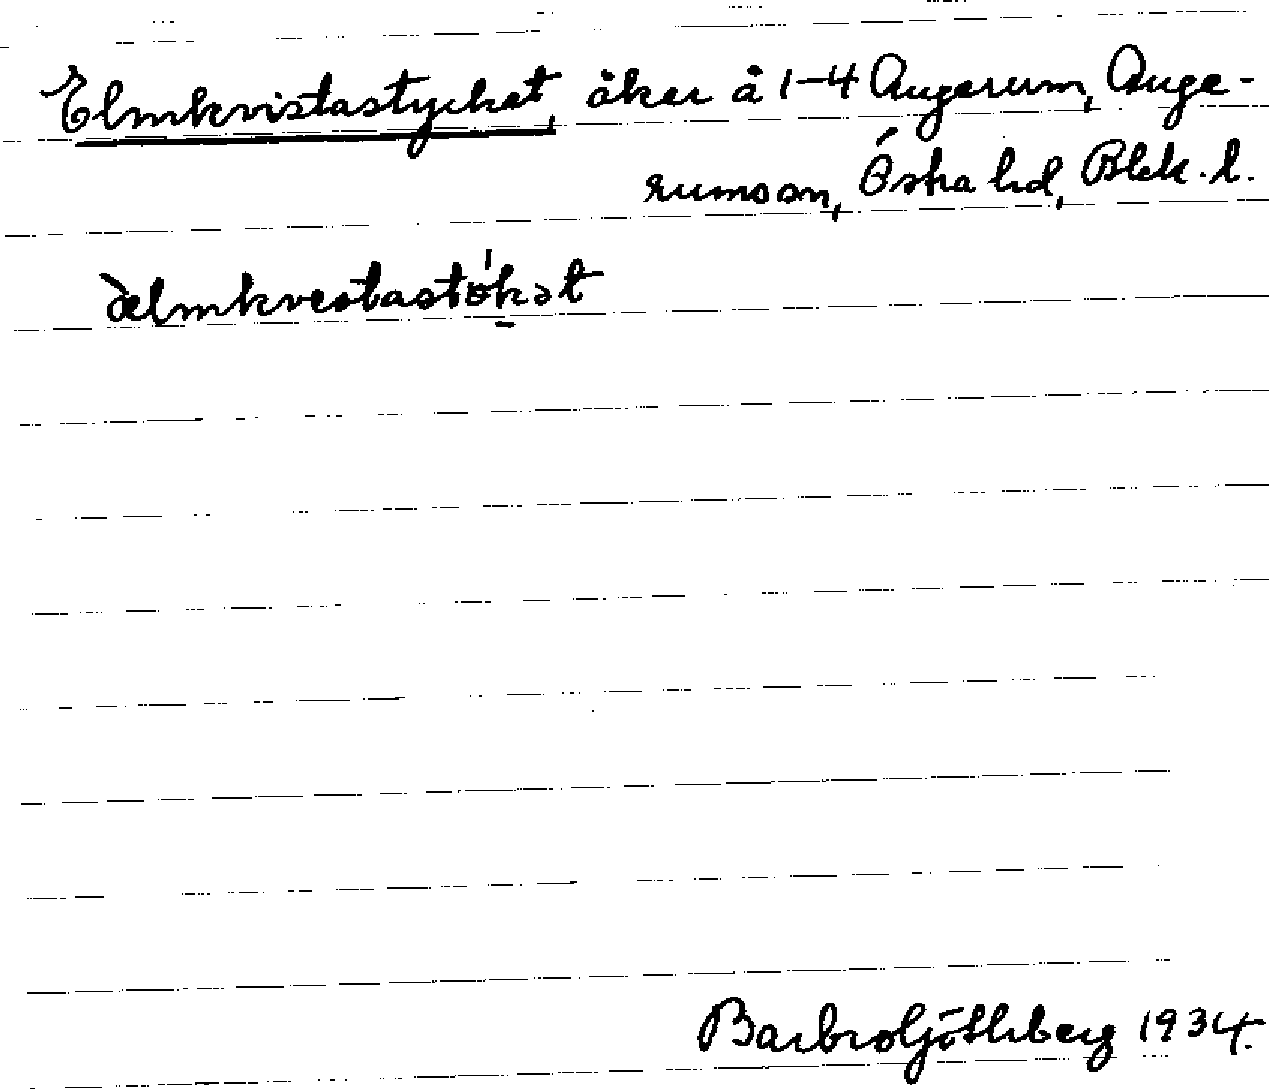 Elmkvistastycket, åker å 1-4 Augerum, Auge-
rums sn, Östra hd, Blek. l.
Barbro Göthberg 1934.